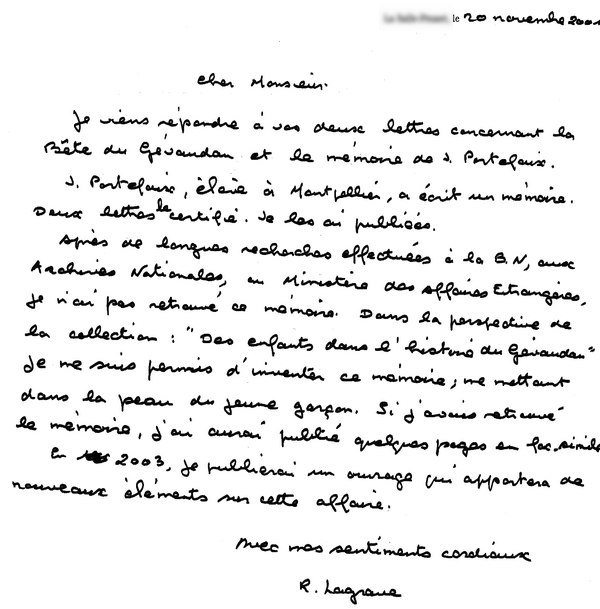 le 20 novembre 2001
Cher Monsieur.
Je viens répondre à vos deux lettres concernant la
Bête du Gévaudan et le mémoire de J. Portefaix.
J. Portefaix, élève à Montpellier, a écrit un mémoire.
Deux lettres le certifié. Je les ai publiées.
Après de longues recherches effectuées à la B.N, aux
Archives Nationales, au Ministère des Affaires Etrangères,
je n'ai pas retrouvé ce mémoire. Dans la perspective de
la collection : "Des enfants dans l'histoire du Gévaudan"
je me suis permis d'inventer ce mémoire, me mettant
dans la peau du jeune garçon. Si j'avais retrouvé
le mémoire, j'ai aurai publié quelques pages en fac.simile
En 2003, je publierai un ouvrage qui apportera de
nouveaux éléments sur cette affaire.
Avec mes sentiments cordiaux
R. Lagrave